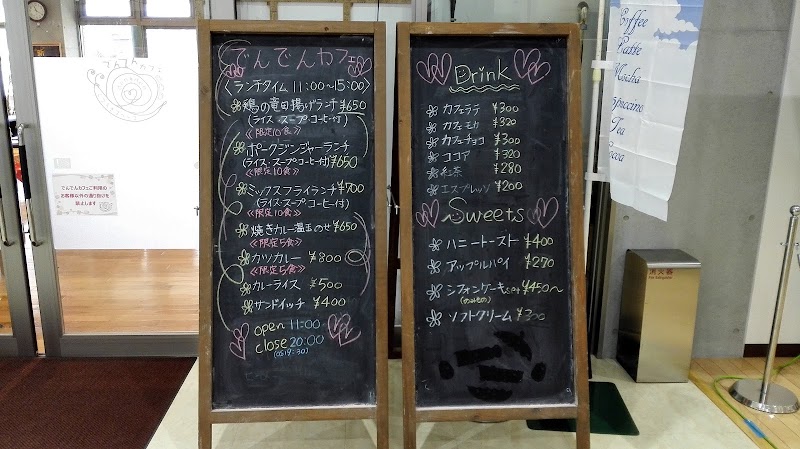 でんでんカフェ
でんでんカフェご利用の
お客様以外の通り抜けを
禁止します
でんでんカフェ
〈ランチタイム 11:00〜15:00〉
鶏の竜田揚げランチ ¥650
(ライス・スープ・コーヒー付)
《限定10食》
ポークジンジャーランチ
(ライス・スープ・コーヒー付) ¥650
《限定10食》
ミックスフライランチ ¥700
(ライス・スープ・コーヒー付)
《限定10食》
焼きカレー温玉のせ ¥650
《限定5食》
カツカレー ¥800
《限定5食》
カレーライス ¥500
サンドイッチ ¥400
open 11:00
close 20:00
(OS19:30)
Drink
カフェラテ ¥300
カフェモカ ¥320
カフェチョコ ¥300
ココア ¥320
紅茶 ¥280
エスプレッソ ¥200
Sweets
ハニートースト ¥400
アップルパイ ¥270
シフォンケーキset ¥450〜
ソフトクリーム ¥300
Coffee
Latte
Mocha
Cappuccino
Tea
Cocoa
消火器